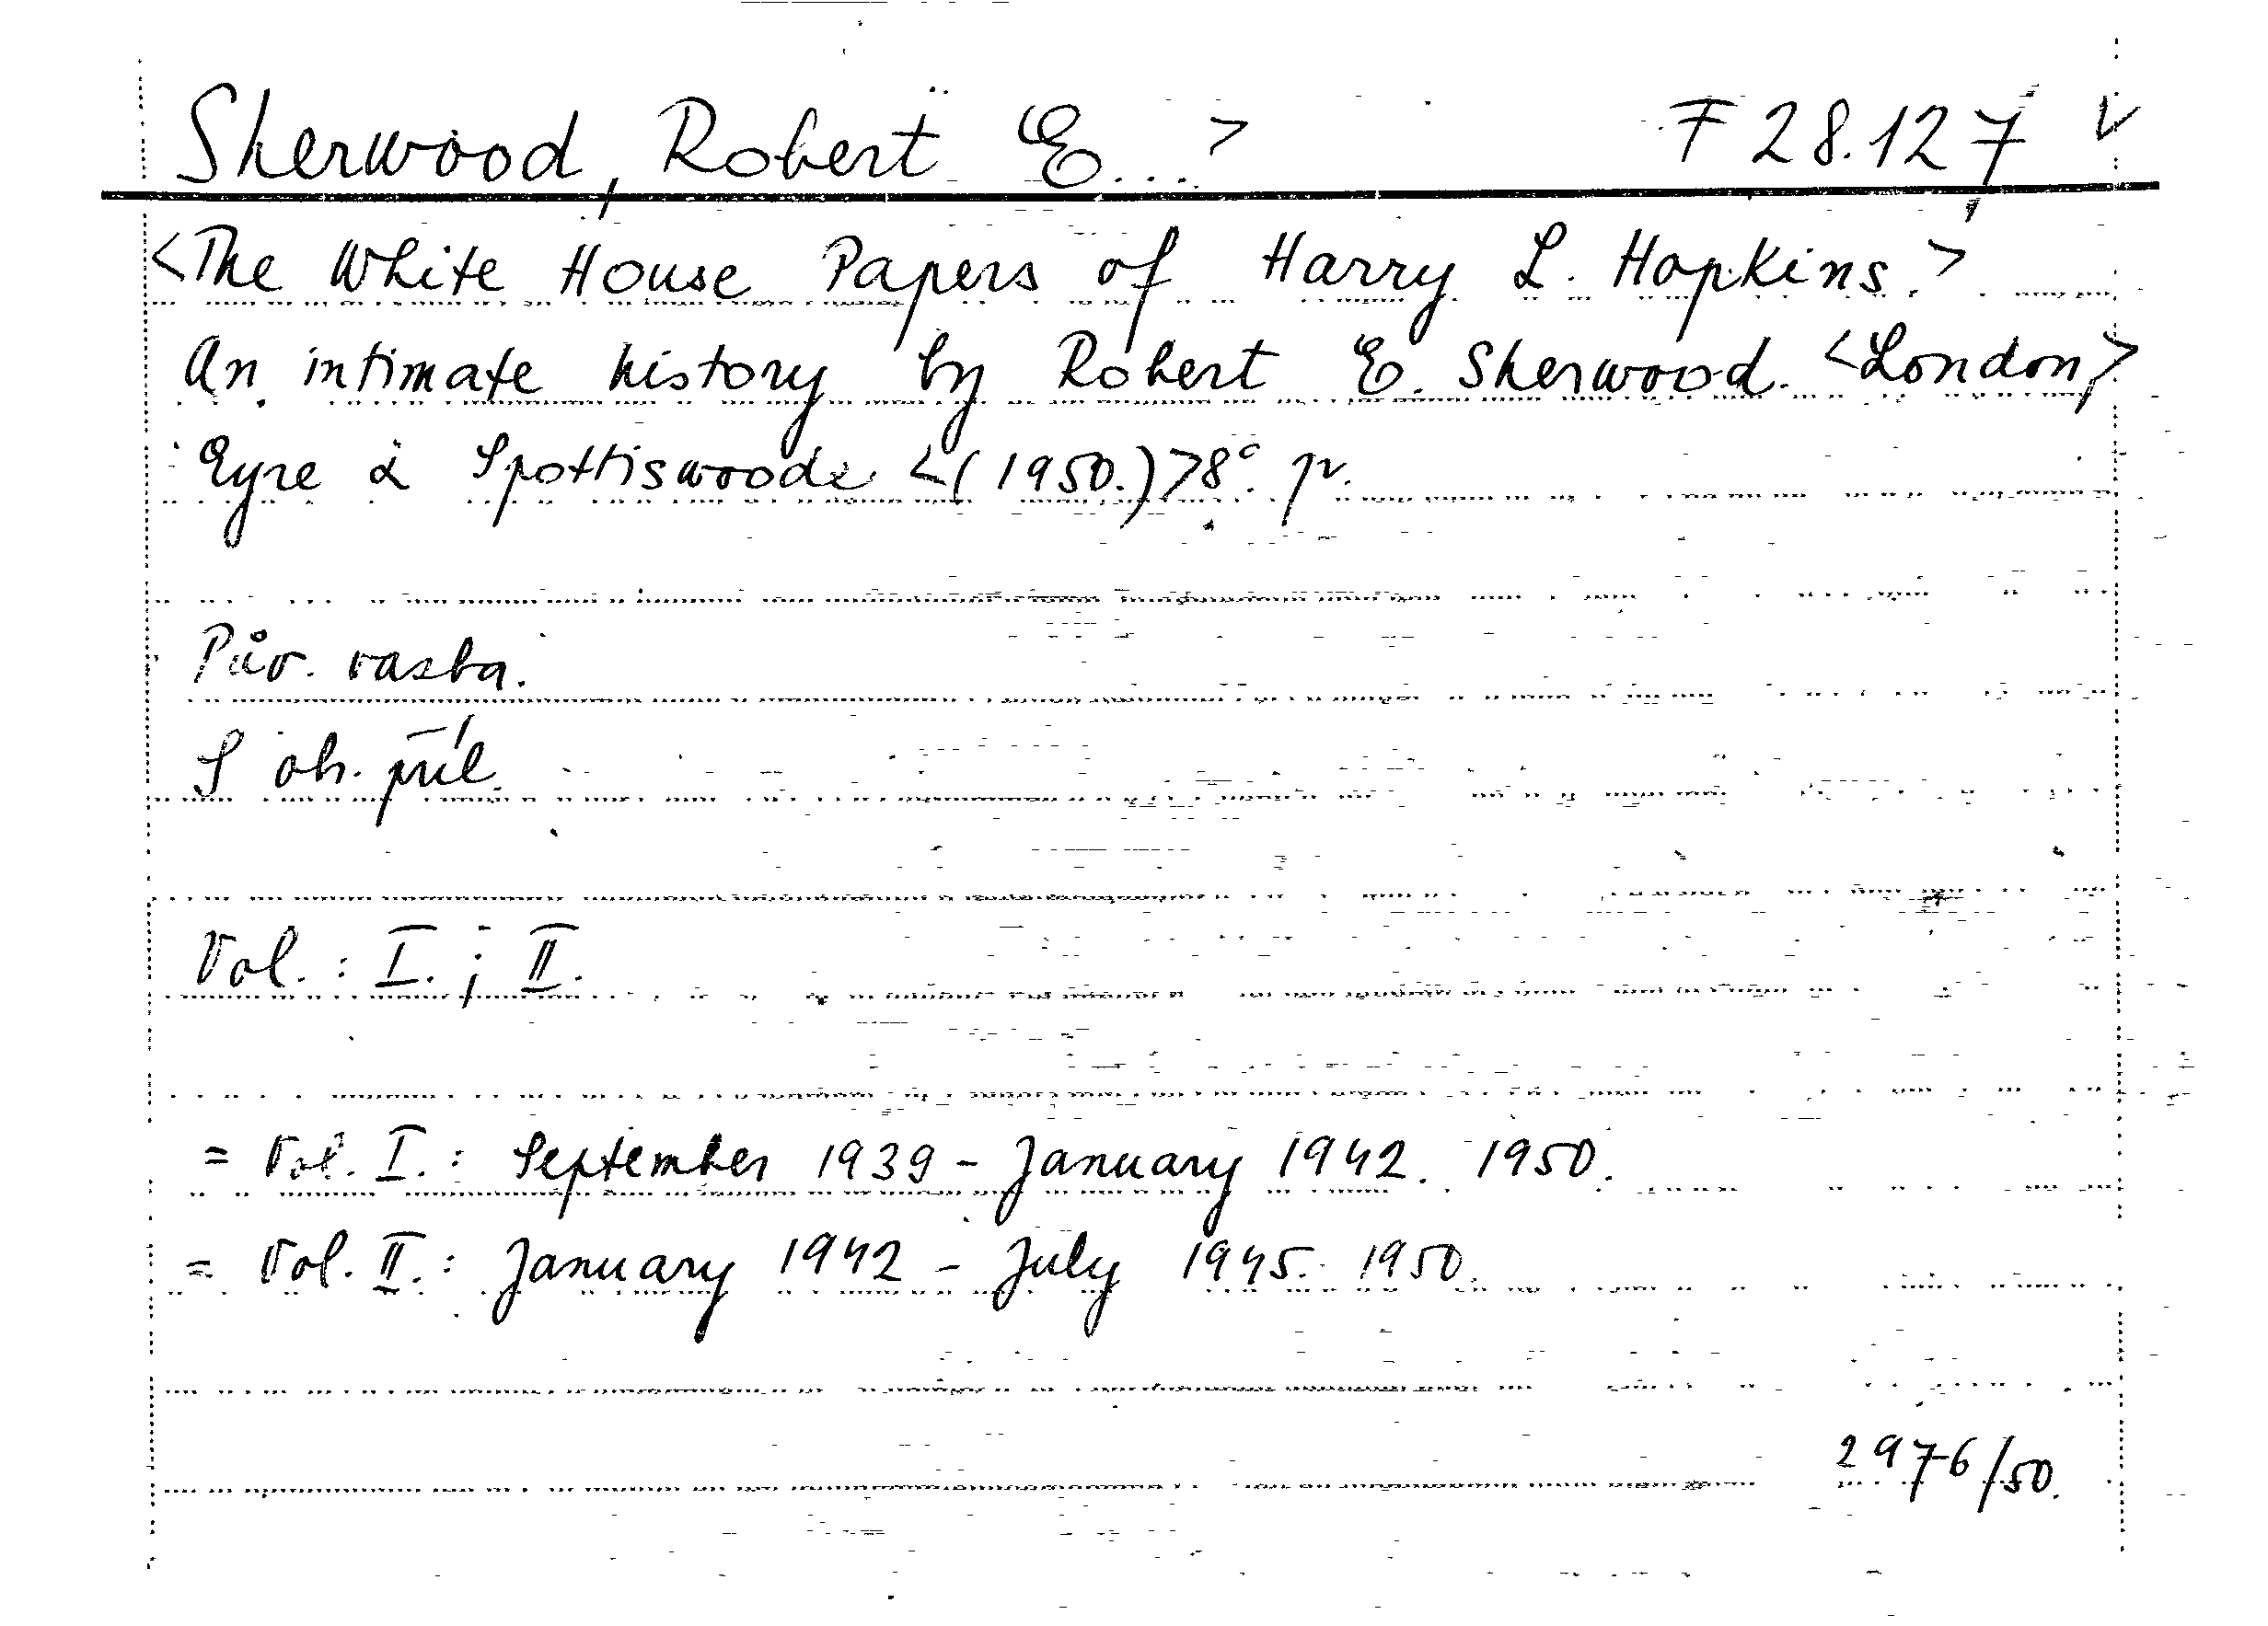 Sherwood, Robert E...> F 28.127 V
<The White House Papers of Harry L. Hopkins.>
An intimate history by Robert E. Sherwood. <London,>
Eyre & Spottiswoode <(1950.)>8°. pv.
Pův. vazba.
S ob. příl.
Vol.: I.; II.
= Vol. I.: September 1939 - January 1942. 1950.
= Vol. II.: January 1942 - July 1945. 1950.
2976/50.